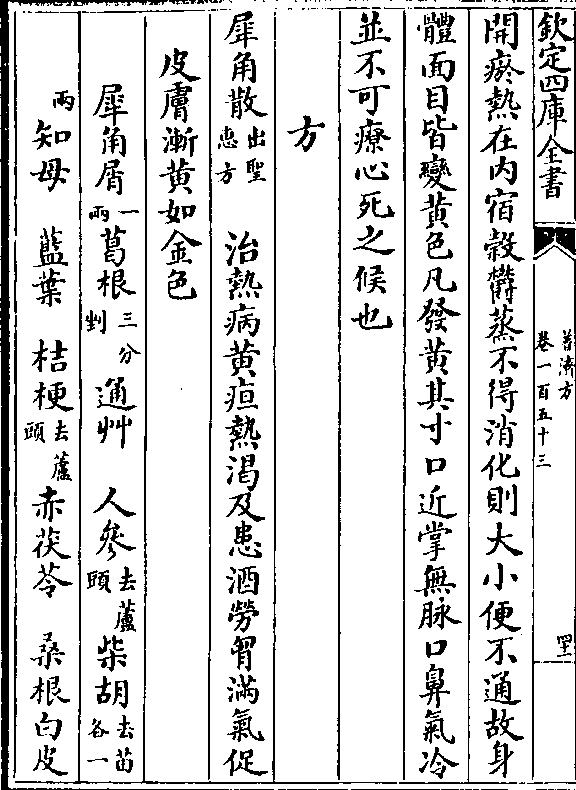 欽定四庫全書
普濟方
卷一百五十三
開瘀熱在内宿穀欝蒸不得消化則大小便不通故身
體面目皆變黃色凡發黃其寸口近掌無脉口鼻氣冷
並不可療心死之候也
方
犀角散出聖惠方 治熱病黃疸熱渴及患酒勞胷滿氣促
皮膚漸黃如金色
犀角屑一兩 葛根三分剉 通艸 人參去蘆頭 柴胡去苗各一
兩 知母 藍葉 桔梗去蘆頭 赤茯苓 桑根白皮